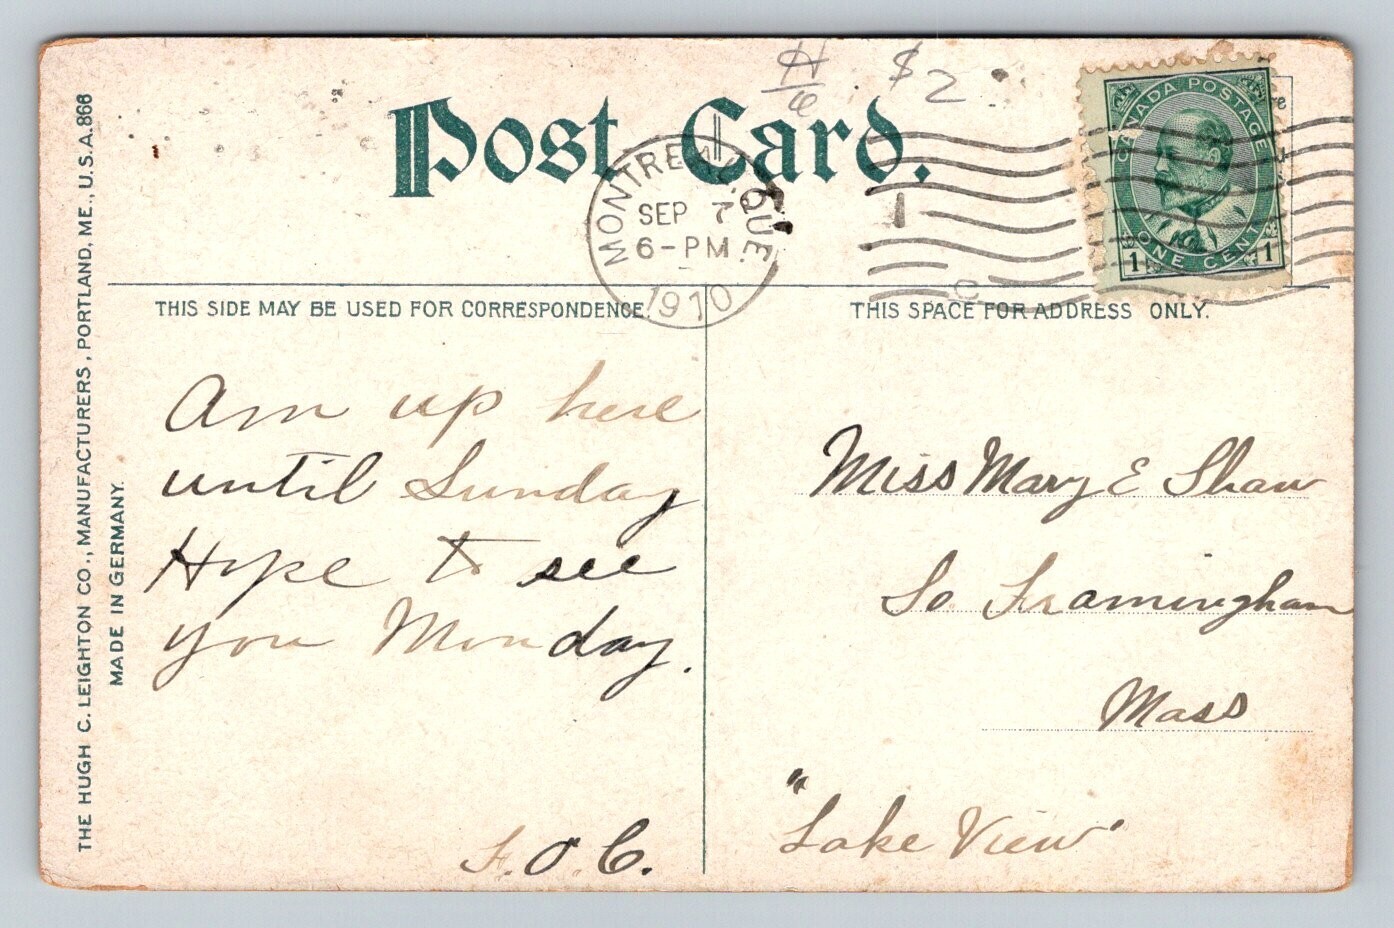 H
6
$2
Post Card.
CANADA POSTAGE
1 ONE CENT 1
MONTREAL, QUE.
SEP 7
6-PM
1910
THIS SIDE MAY BE USED FOR CORRESPONDENCE.
THIS SPACE FOR ADDRESS ONLY.
Am up here
until Sunday
Hope to see
you Monday.
F.O.C.
Miss Mary E Shaw
So Framingham
Mass
"Lake View"
THE HUGH C. LEIGHTON CO., MANUFACTURERS, PORTLAND, ME., U.S.A. 866
MADE IN GERMANY.